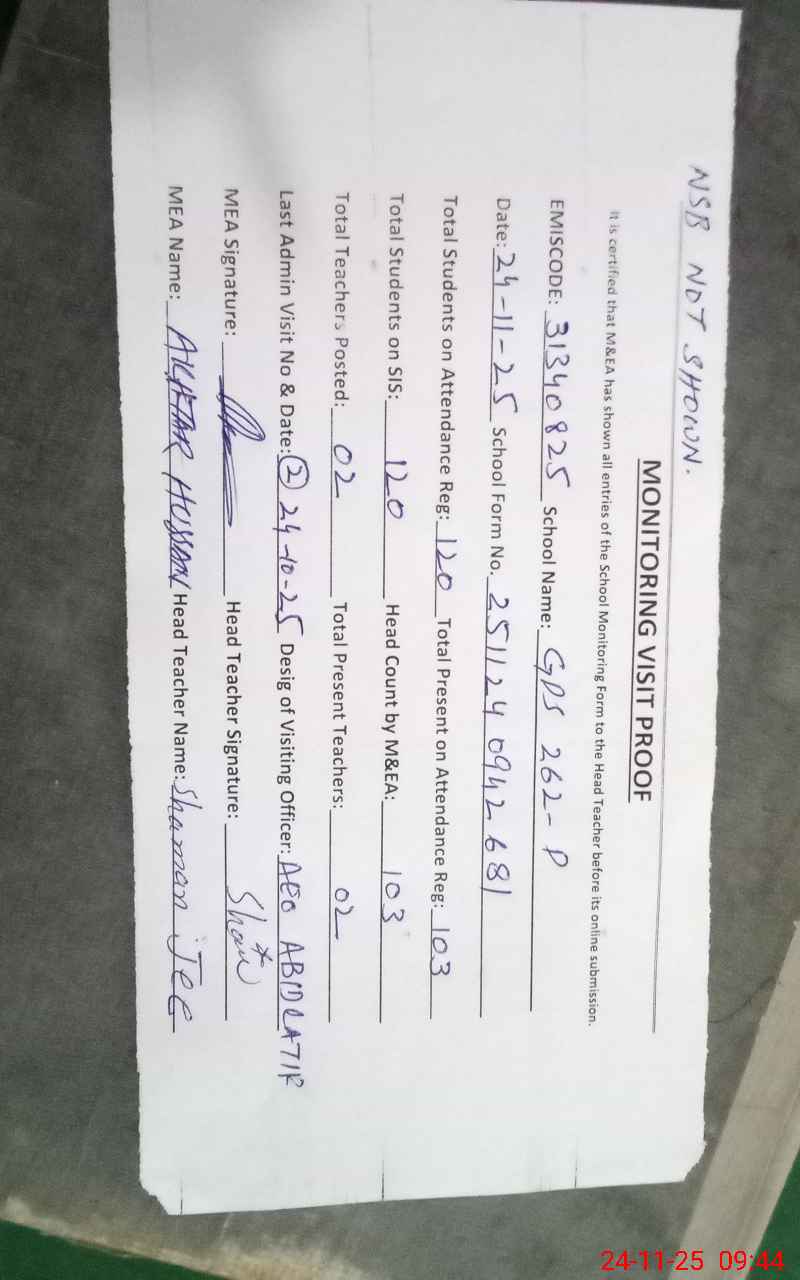 NSB NOT SHOWN.
MONITORING VISIT PROOF
It is certified that M&EA has shown all entries of the School Monitoring Form to the Head Teacher before its online submission.
EMISCODE: 31340825 School Name: GPS 262-P
Date: 24-11-25 School Form No. 251124 0942 681
Total Students on Attendance Reg: 120 Total Present on Attendance Reg: 103
Total Students on SIS: 120 Head Count by M&EA: 103
Total Teachers Posted: 02 Total Present Teachers: 02
Last Admin Visit No & Date: (2) 24-10-25 Desig of Visiting Officer: AEO
MEA Signature: Head Teacher Signature:
MEA Name: AKHTAR HUSSAIN Head Teacher Name: Shaman Jee
24-11-25 09:44